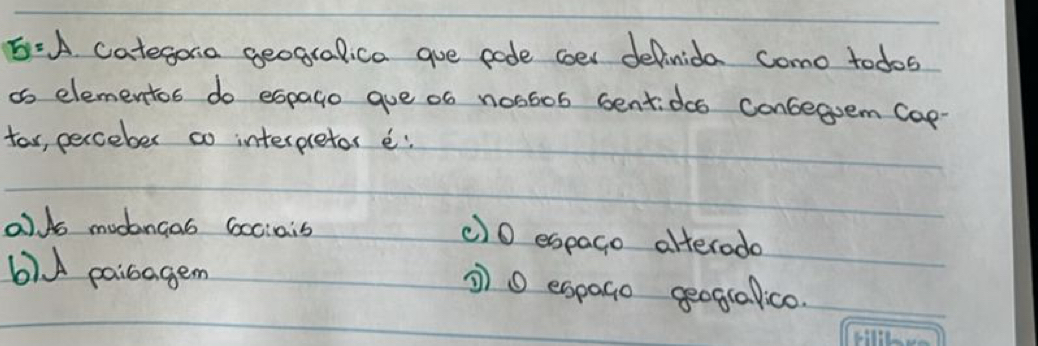 5= A categoria geografica que pode ser definida como todos
os elementos do espaço que os nossos sentidos conseguem cap-
tar, perceber ou interpretar é:
a) As mudanças sociais
b) A paisagem
c) O espaço alterado
D) O espaço geografico.
tilibra